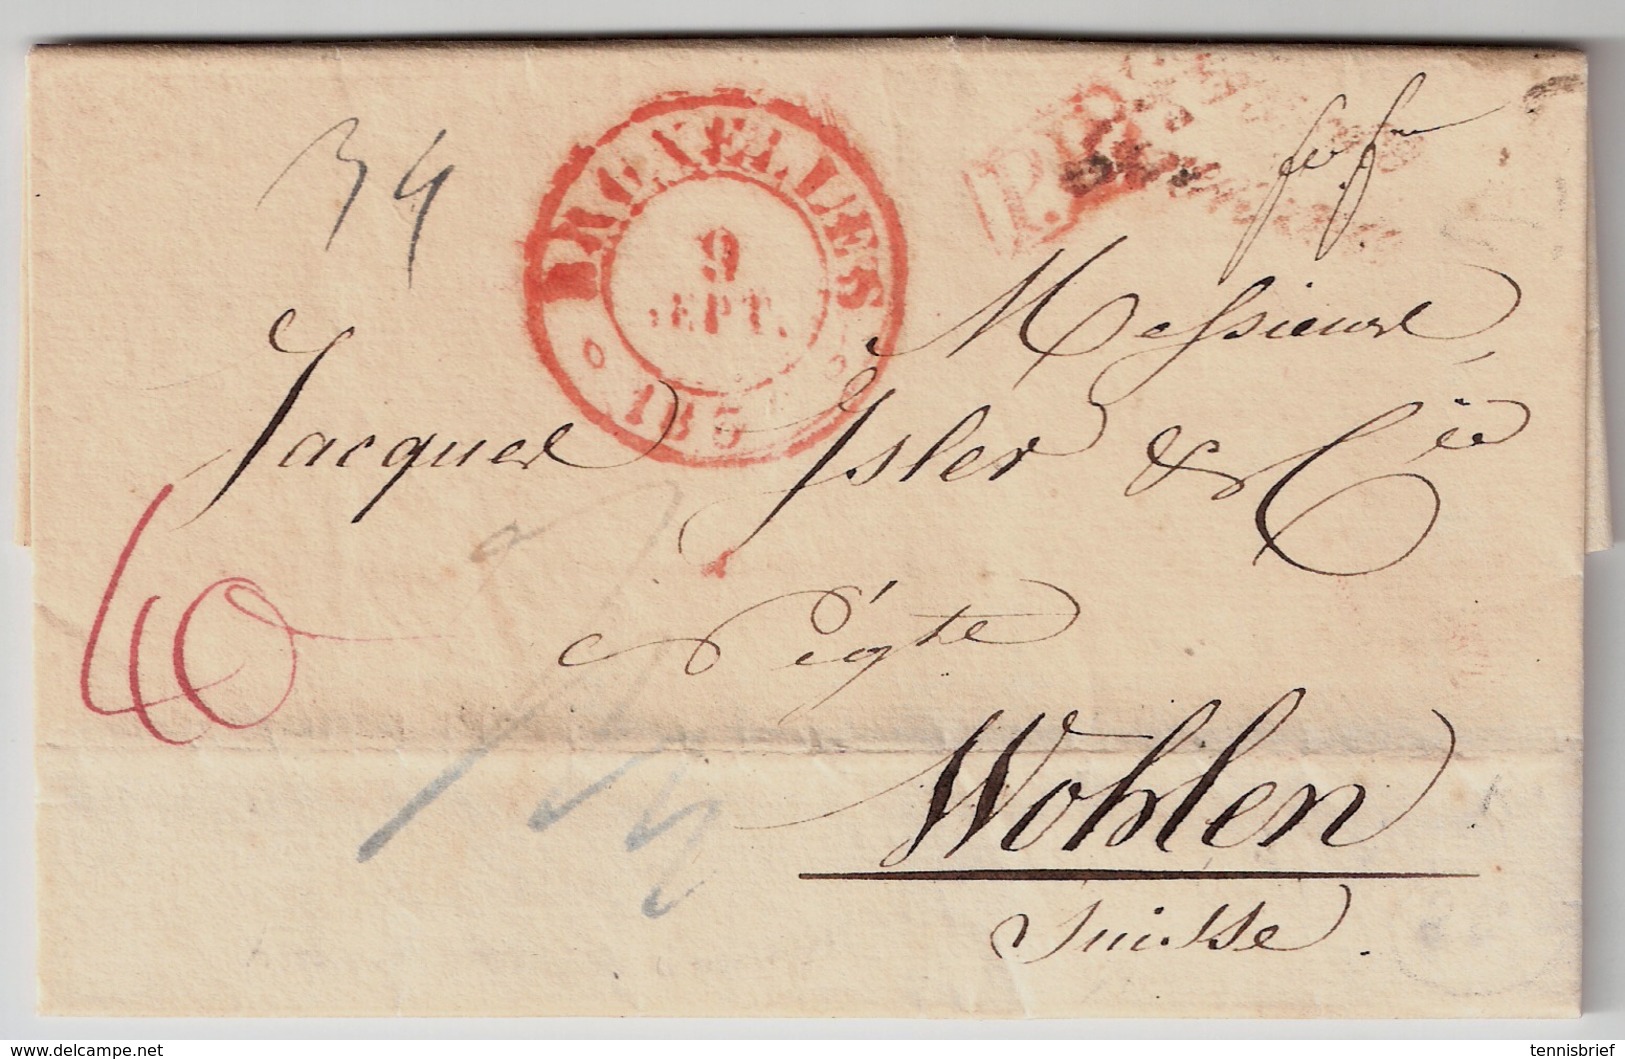 34
BRUXELLES
9
SEPT.
P.P.
Messieurs
Jacques Isler & Cie
Négts
40
Wohlen
Suisse.
www.delcampe.net
tennisbrief